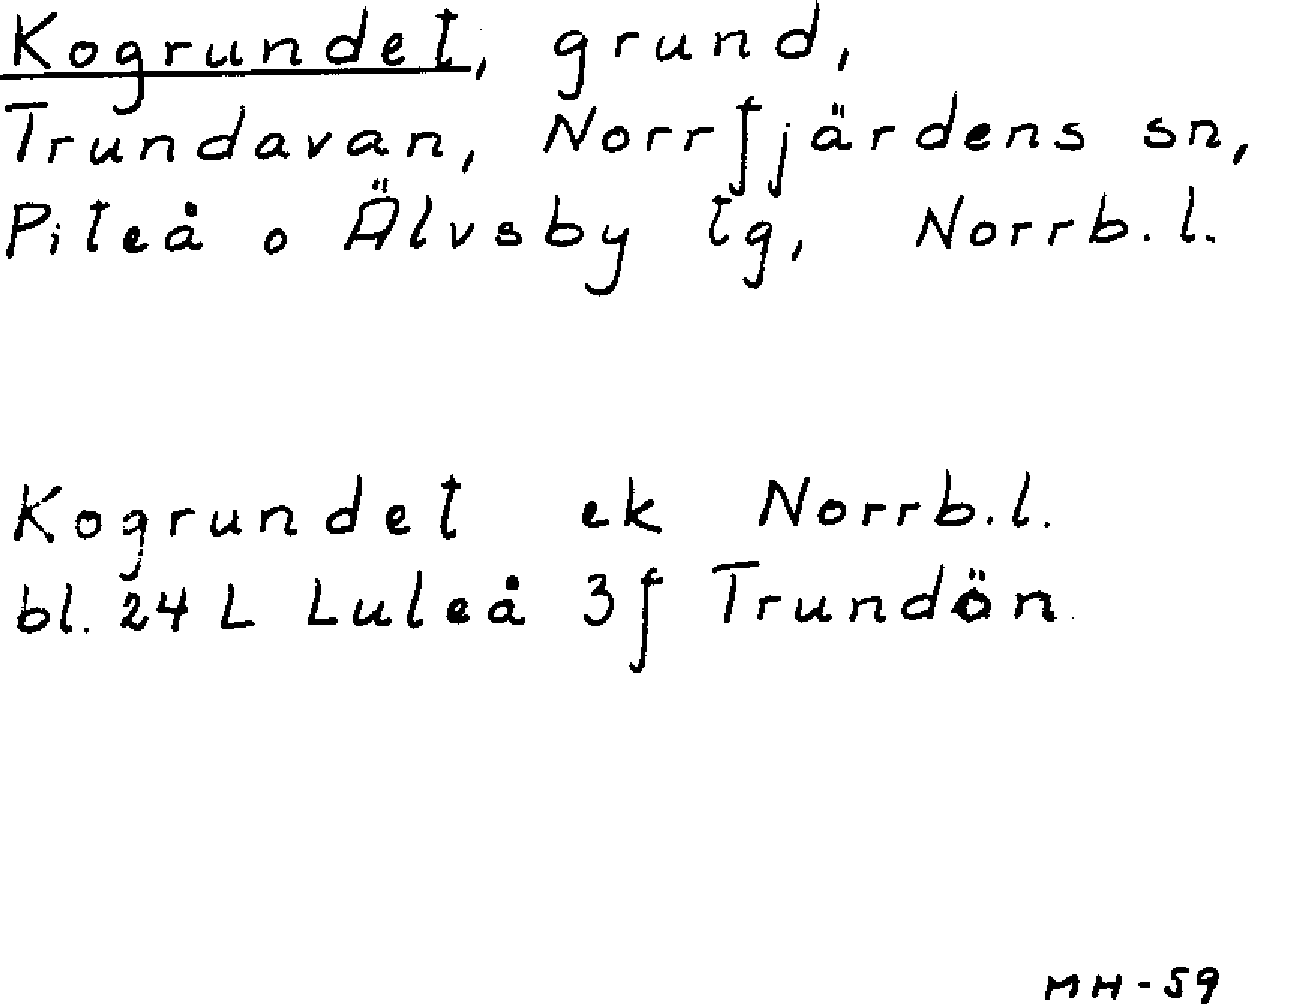 Kogrundet, grund,
Trundavan, Norrfjärdens sn,
Piteå o Älvsby tg, Norrb.l.
Kogrundet ek Norrb.l.
bl. 24 L Luleå 3f Trundön
MH-59